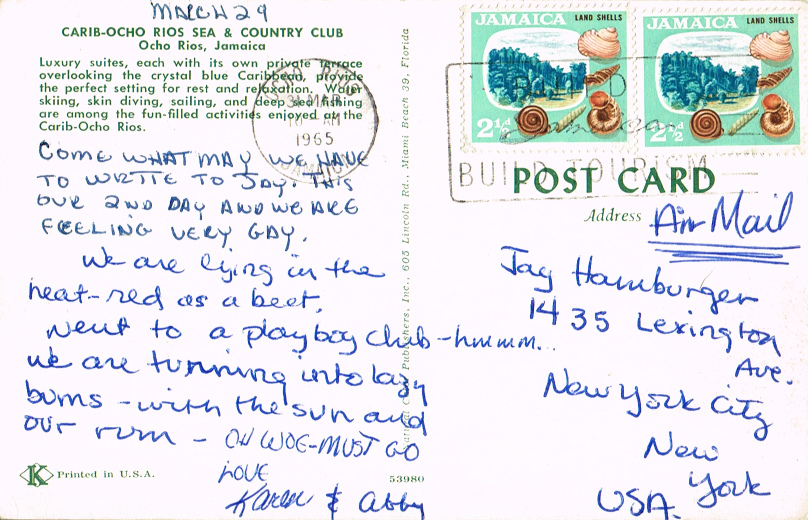 MARCH 29
CARIB-OCHO RIOS SEA & COUNTRY CLUB
Ocho Rios, Jamaica
Luxury suites, each with its own private terrace
overlooking the crystal blue Caribbean, provide
the perfect setting for rest and relaxation. Water
skiing, skin diving, sailing, and deep sea fishing
are among the fun-filled activities enjoyed at the
Carib-Ocho Rios.
COME WHAT MAY WE HAVE
TO WRITE TO JAY. THIS
OUR 2ND DAY AND WE ARE
FEELING VERY GAY.
We are lying in the
heat-red as a beet.
Went to a playboy club-hmmm...
we are turning into lazy
bums - with the sun and
our rum - OH WOE-MUST GO
LOVE
Karen & Abby
K Printed in U.S.A.
53980
Publishers, Inc., 605 Lincoln Rd., Miami Beach 39, Florida
OCHO RIOS
31 MAR
AM
1965
JAMAICA LAND SHELLS
2½d
JAMAICA LAND SHELLS
2½d
BUILD
Jamaica
BUILD TOURISM
POST CARD
Address
Air Mail
Jay Hamburger
1435 Lexington
Ave.
New York City
New
York
USA.